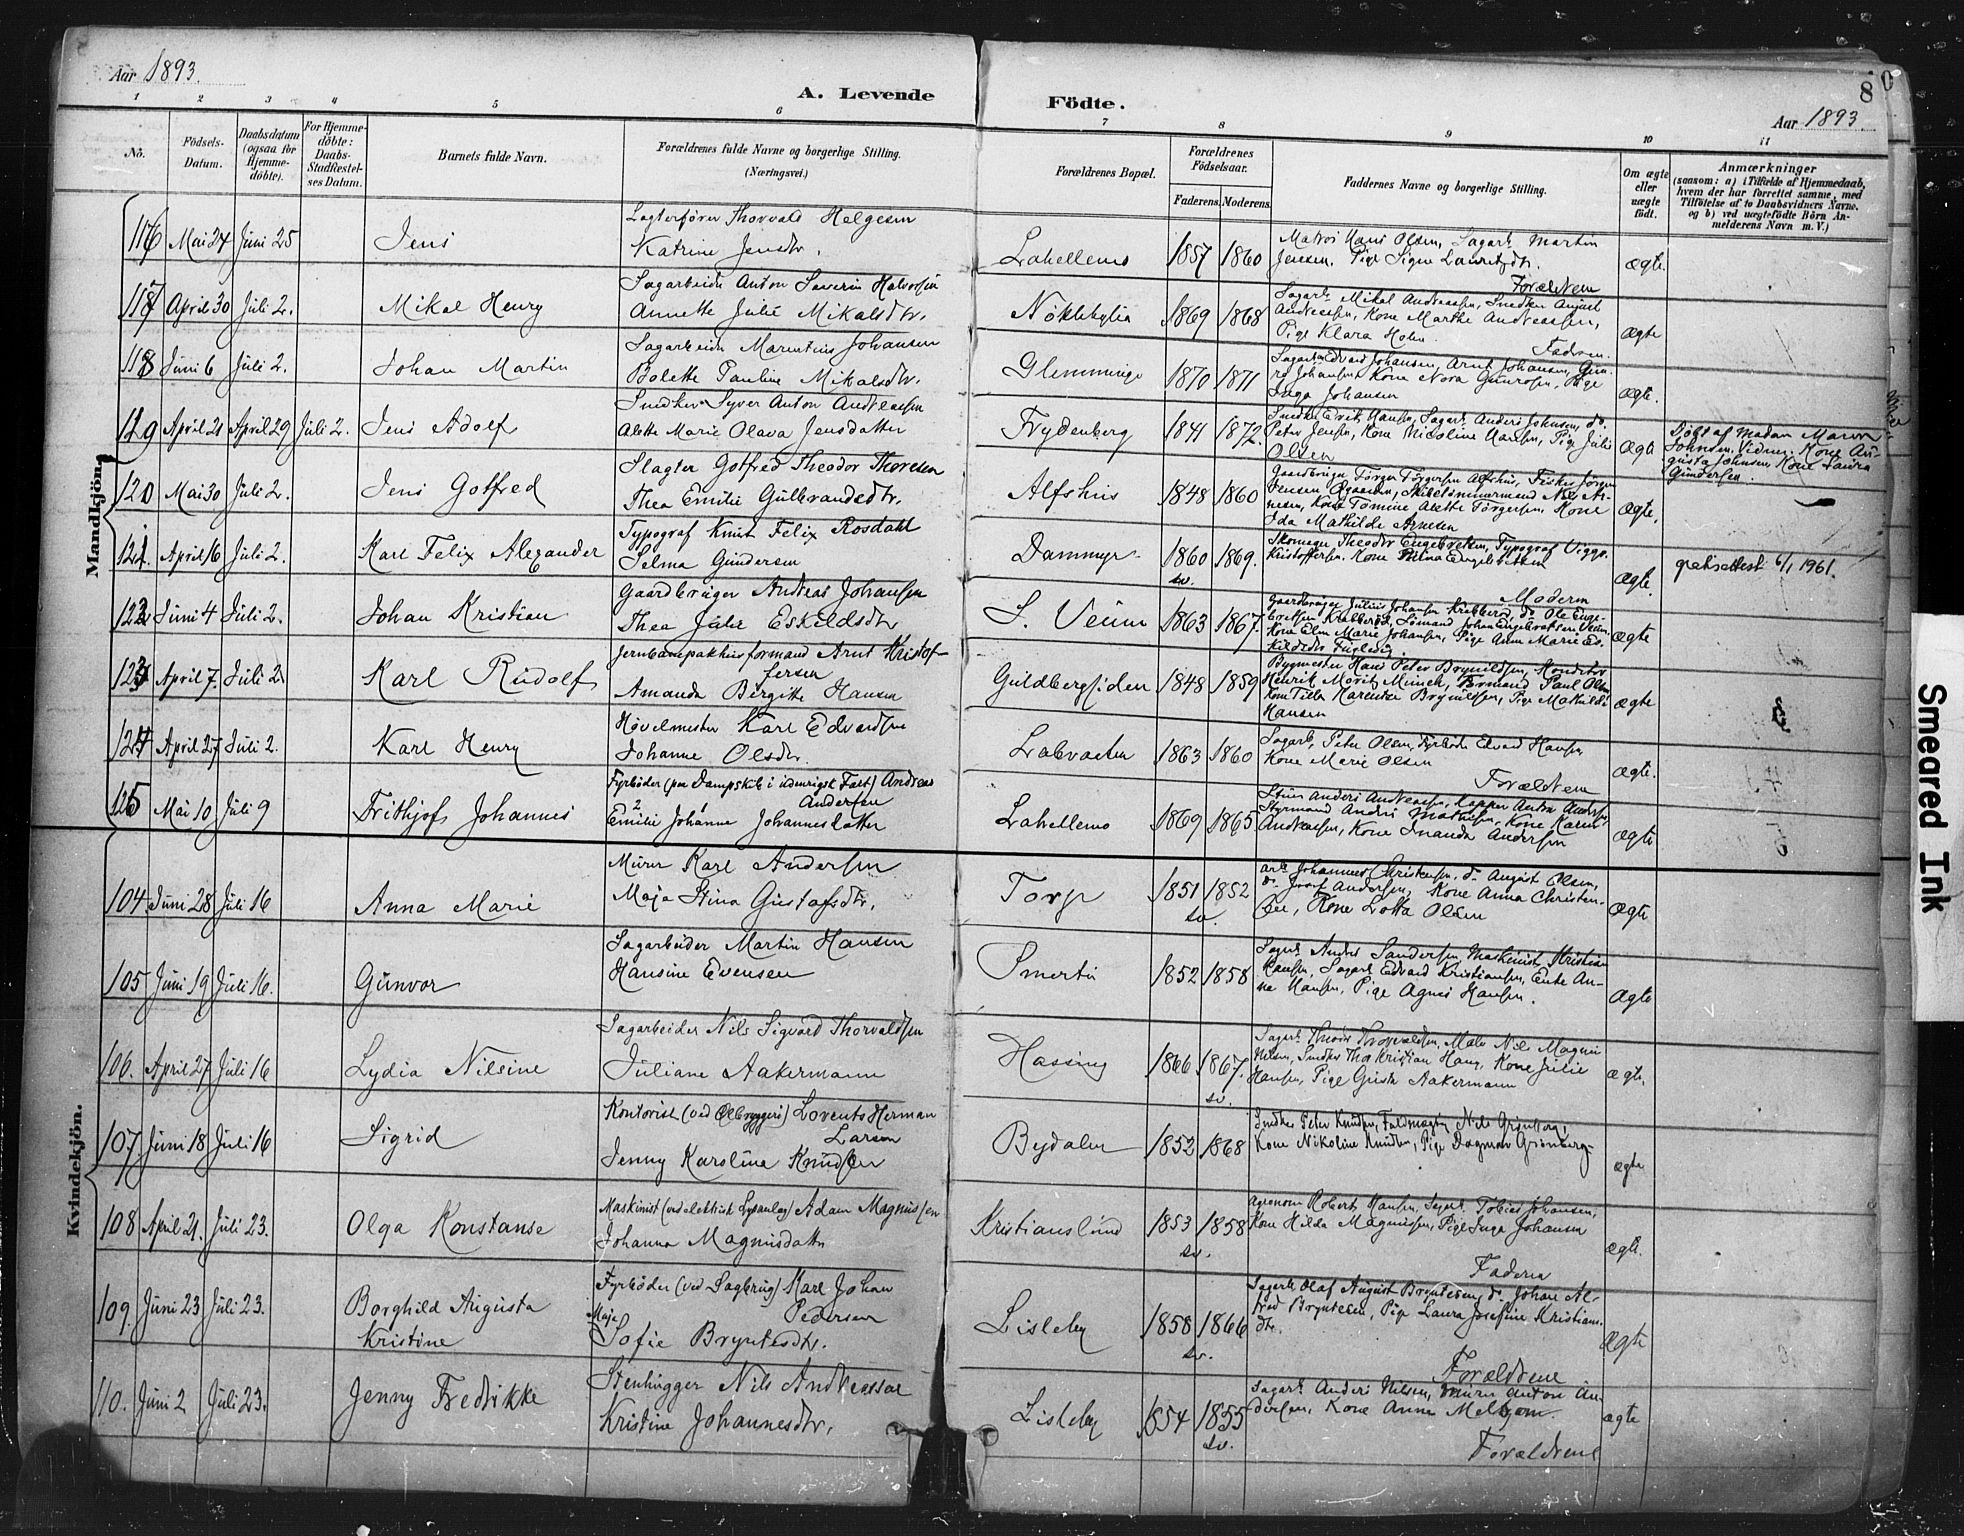 Aar 1893.
A. Levende
Födte.
8
Aar 1893
1 2 3 4 5 6 7 8 9 10 11
No.
Födsels-Datum.
Daabsdatum (ogsaa for Hjemme-döbte).
For Hjemme-döbte: Daabs-Stadfæstel-ses Datum.
Barnets fulde Navn.
Forældrenes fulde Navne og borgerlige Stilling.
(Næringsvei.)
Forældrenes Bopæl.
Forældrenes Födselsaar.
Faderens. Moderens.
Faddernes Navne og borgerlige Stilling.
Om ægte eller uægte födt.
Anmærkninger
(saasom: a) i Tilfælde af Hjemmedaab,
hvem der har forrettet samme, med
Tilföielse af to Daabsvidners Navne.
og b) ved uægtefödte Börn An-
melderens Navn m. V.)
Mandkjön.
116 Mai 24 Juni 25 Jens
Thorvald Helgesen
Katrine Jensdtr.
Lahellemo 1857 1860
Matros Hans Olsen, Sagarb. Martin
Jensen, Pige Signe Lauritzdtr.
Forældrene
ægte.
117 April 30 Juli 2. Mikal Henry
Sagarbeider Anton Severin Halvorsen
Annette Julie Mikalsdtr.
Nökleby 1869 1868
Sagarb. Mikal Andreassen, Snedker August
Andreassen, Kone Marthe Andreassen,
Pige Klara Holm.
Faderen.
ægte
118 Juni 6 Juli 2. Johan Martin
Sagarbeider Marentius Johansen
Bolette Pauline Mikalsdtr.
Glemminge 1870 1871
Sagarb. Edvard Johansen, Arnt Johansen, Gun-
Johansen Kone Nora Gunrosen, Pige
Inga Johansen
ægte.
119 April 21 April 29 Juli 2. Jens Adolf
Snedker Syver Anton Andreassen
Alette Marie Olava Jensdatter
Frydenberg 1841 1872.
Snedker Erik Hansen, Sagarb. Anders Johnsen, do.
Peter Jensen, Kone Nicoline Hansen, Pige Julie
Olsen
ægte
Döbt af Madam Maren
Johnsen. Vidner: Kone Au-
gusta Johnsen, Kone Laura
Gundersen.
120 Mai 30 Juli 2. Jens Gotfred
Slagter Gotfred Theodor Thoresen
Thea Emilie Gulbrandsdtr.
Alfshus 1848 1860
Gaardbruger Törger Törgersen Alfshus, Fisker Jörgen
Jensen, Skibstömmermand Nils Ar-
nesen, Kone Tomine Alette Törgersen, Kone
Ida Mathilde Arnesen
ægte.
121. April 16 Juli 2. Karl Felix Alexander
Typograf Knut Felix Rosdahl
Selma Gundersen
Dammyr 1860 sv. 1869.
Skomager Theodor Engebretsen, Typograf Viggo
Kristoffersen, Kone Mina Engebretsen
Moderen
ægte.
gratisattest 6/1 1961.
122 Juni 4 Juli 2. Johan Kristian
Gaardbruger Andreas Johansen
Thea Julie Eskildsdtr
S. Veum 1863 1867.
Gaardbruger Julius Johansen Krabberöd, do. Ole Enge-
bretsen Krabberöd, Sömand Johan Engebretsen Veum,
Kone Elen Marie Johansen, Pige Anne Marie Es-
kildsdtr
ægte
123 April 7. Juli 2 Karl Rudolf
Jernbanpakhusformand Arnt Kristof-
fersen
Amanda Birgitte Hansen
Guldbergsiden 1848 1859
Bygmester Hans Peter Brynildsen, Konditor
Henrik Moritz Munch, Formand Paul Olsen
Kone Tilla Karentze Brynildsen, Pige Mathilde
Hansen
ægte
124 April 27 Juli 2. Karl Henry
Hövelmester Karl Edvardsen
Johanne Olsdtr.
1863 1860
Sagarb. Peter Olsen, Fyrböder Edvard Hansen,
Kone Marie Olsen
Forældrene
ægte.
125 Mai 10 Juli 9 Frithjof Johannes
Fyrböder (paa Dampskib i idenrigsk Fart) Andreas
Andersen
Emilie Johanne Johannesdatter
Lahellemo 1869 1865
Anders Andreassen, Anton Andersen,
Styrmand Anders Mathisen, Kone Karen
Andreassen, Kone Amanda Andersen
ægte
Kvindekjön.
104. Juni 28 Juli 16 Anna Marie
Murer Karl Andersen
Maja Stina Gustafsdtr.
Torp 1851 sv. 1852
arb. Johannes Christensen, do. August Olsen,
do. Josef Andersen, Kone Anna Christen-
sen, Kone Lotta Olsen
ægte
105 Juni 19 Juli 16. Gunvor
Sagarbeider Martin Hansen
Hansine Evensen
Smertu 1852 1858
Sagarb. Anders Sandersen, Maskinist Kristian
Hansen, Sagarb. Edvard Kristiansen, Enke An-
na Hansen, Pige Agnes Hansen.
ægte
106. April 27 Juli 16 Lydia Nilsine
Sagarbeider Nils Sigvard Thorvaldsen
Juliane Aakermann
Hassing 1866 1867. sv.
Sagarb. Theodor Thorvaldsen, Maler Nils Magnus
Nilsen, Snedker Thor Kristian Haug, Kone Julie
Hansen, Pige Gusta Aakermann
ægte.
107 Juni 18 Juli 16 Sigrid
Kontorist (ved Ölbryggeri) Lorents Herman
Larsen
Jenny Karoline Knudsen
Bydalen 1852 1868
Snedker Peter Knudsen, Feldmægtig Nils Grönberg,
Kone Nikoline Knudsen, Pige Dagmar Grönberg
ægte
108 April 21. Juli 23. Olga Konstanse
Maskinist (ved elektrisk Lysanlæg) Adam Magnussen
Johanna Magnusdatter
Kristianslund 1853 sv. 1858
Agronom Robert Hansen, Sagarb. Tobias Johansen,
Kone Hilda Magnussen, Pige Inga Johansen
Faderen
ægte.
109. Juni 23 Juli 23. Borghild Augusta
Kristine
Fyrböder (ved Sagbrug) Karl Johan
Pedersen
Maja
Sofie Bryntesdtr.
Lisleby 1858 sv. 1866
Sagarb. Olaf August Bryntesen, do. Johan Al-
fred Bryntesen, Pige Laura Josefine Kristians-
dtr.
Forældrene
ægte
110. Juni 2 Juli 23. Jenny Fredrikke
Stenhugger Nils Andreassen
Kristine Johannesdtr.
Lisleby 1854 1855 sv.
Sagarb. Anders Nilsen, Murer Anton An-
dersen, Kone Anne
Forældrene
ægte
Smeared Ink